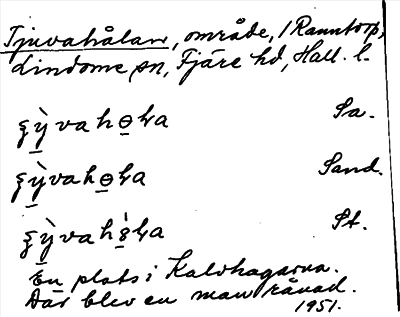 Tjuvahålan, område, / Ranntorp,
Lindome sn, Fjäre hd, Hall. l.
ȿỳvahɵꞎa Sa.
ȿỳvahɵꞎa Sand.
St.
En plats i Kalvhagarna.
Där blev en man rånad.
1951.